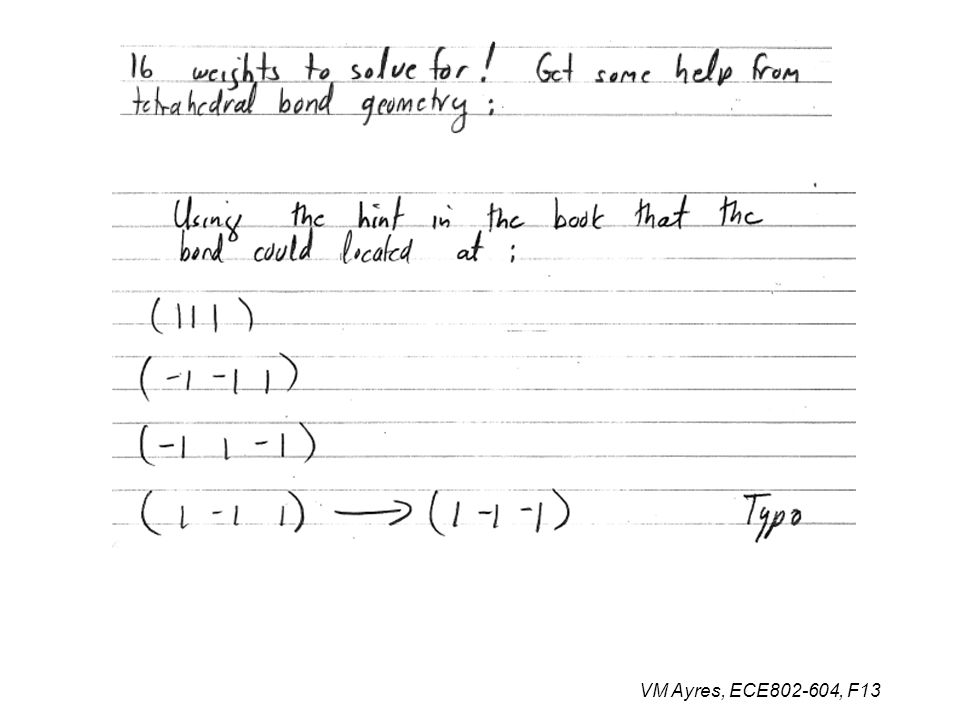 16 weights to solve for! Get some help from
tetrahedral bond geometry:
Using the hint in the book that the
bond could located at:
(1 1 1)
(-1 -1 1)
(-1 1 -1)
(1 -1 1) → (1 -1 -1) Typo
VM Ayres, ECE802-604, F13